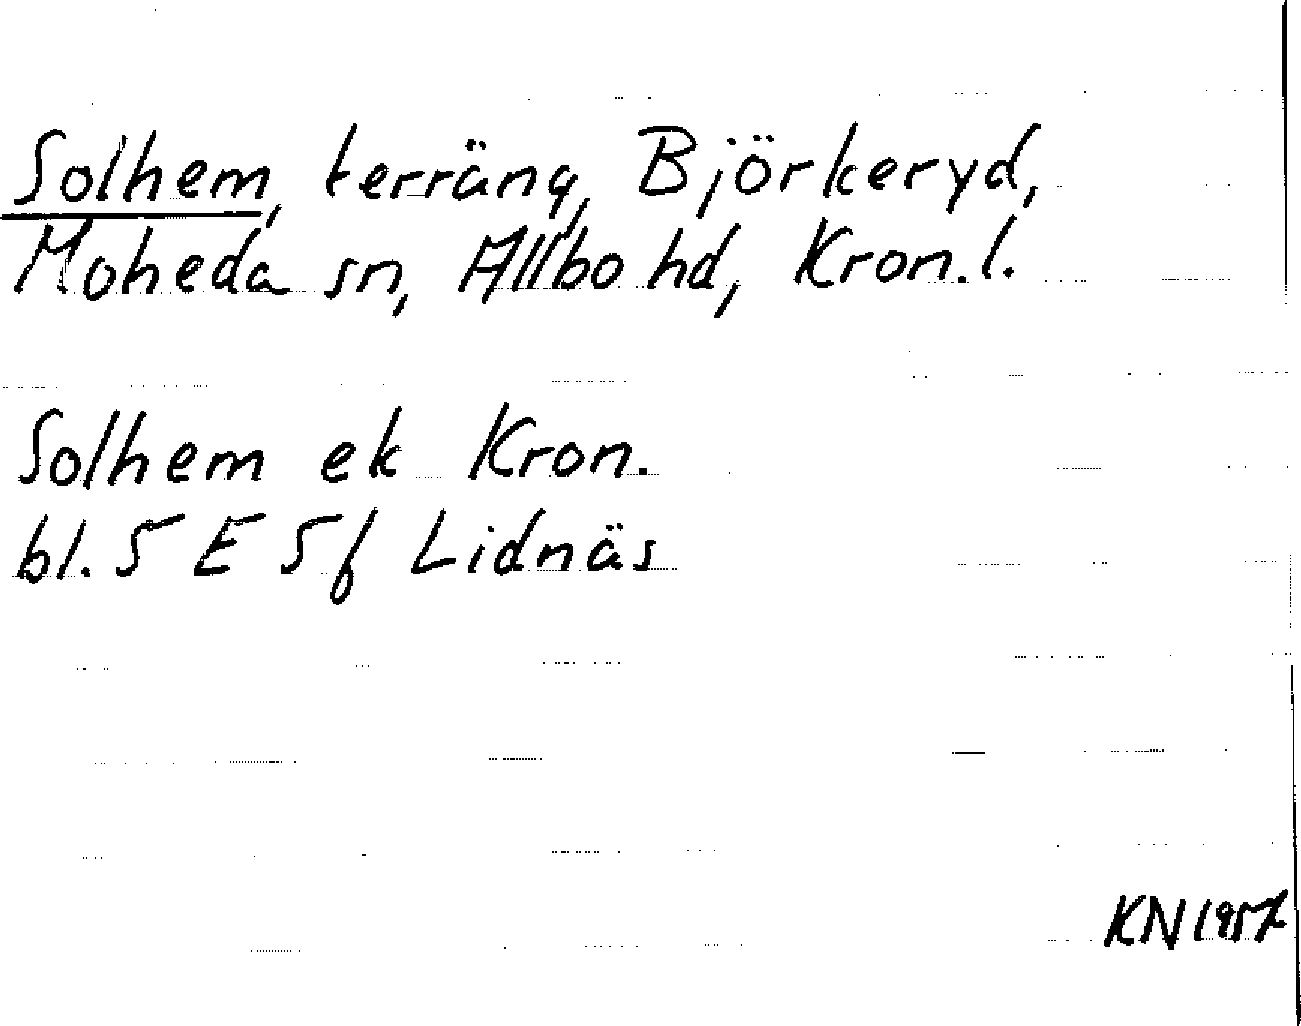 Solhem, terräng, Björkeryd,
Moheda sn, Allbo hd, Kron.l.
Solhem ek Kron.
bl. 5 E 5f Lidnäs
KN 1957